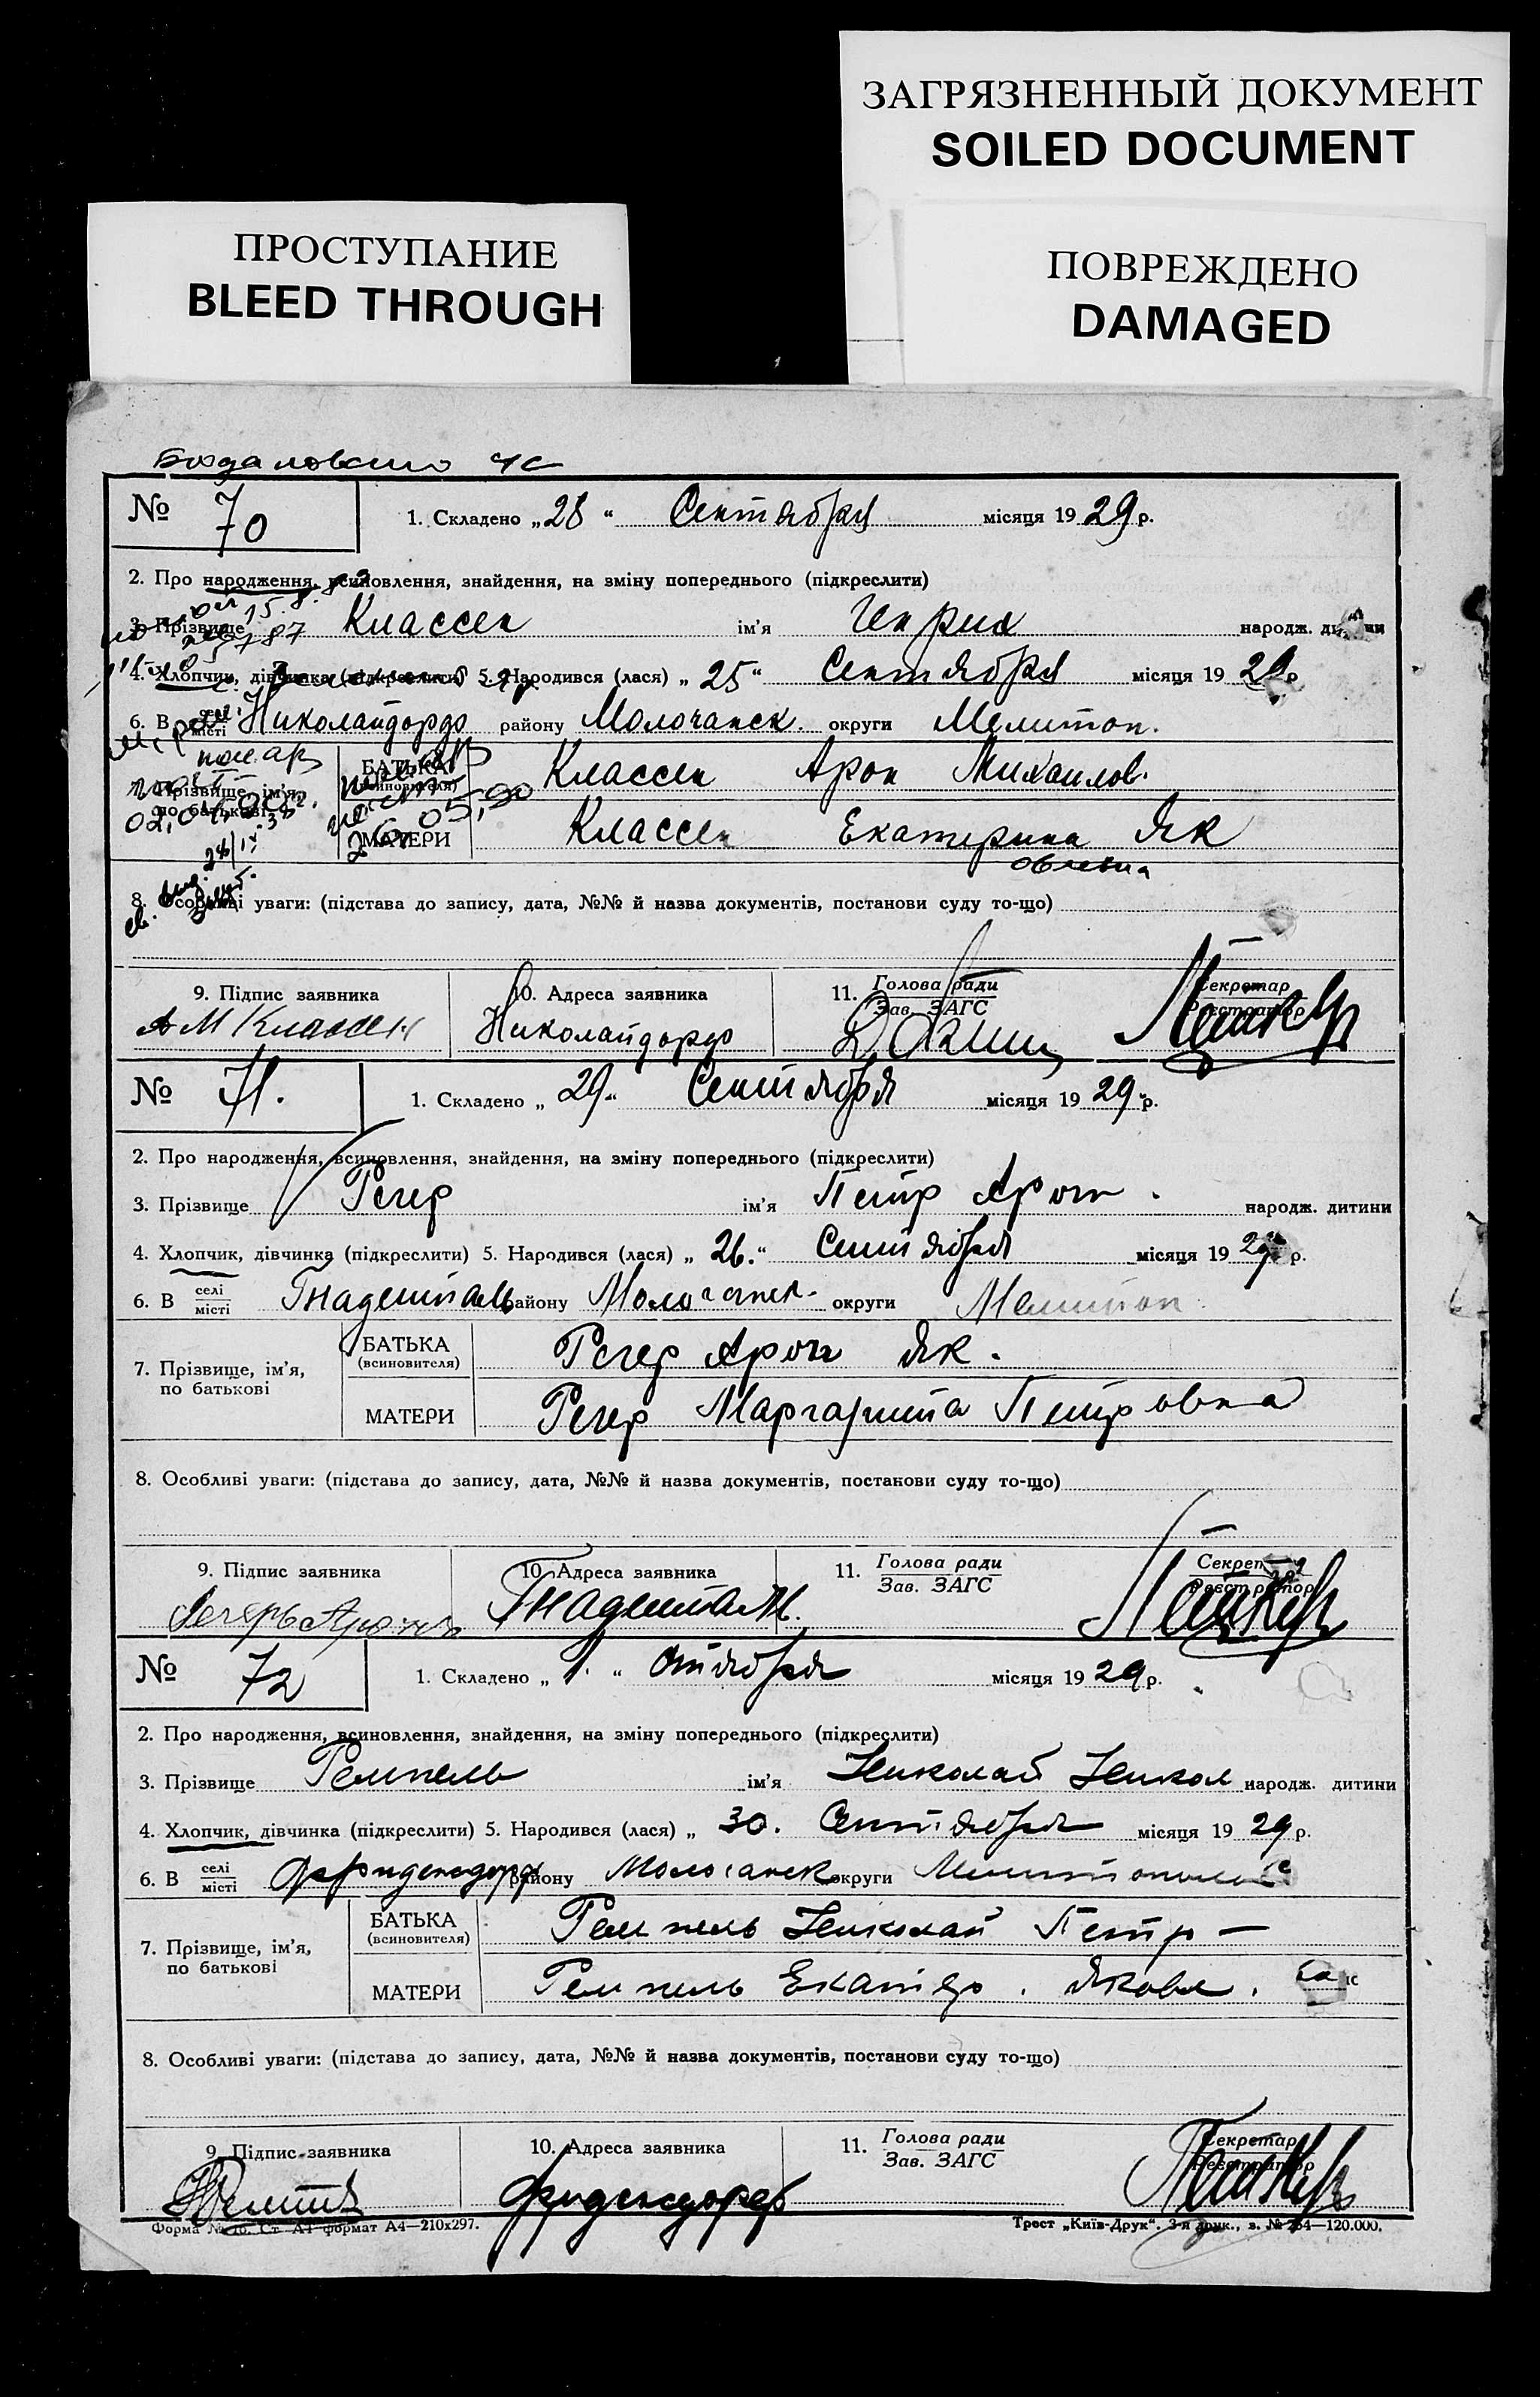 ЗАГРЯЗНЕННЫЙ ДОКУМЕНТ
SOILED DOCUMENT
ПРОСТУПАНИЕ
BLEED THROUGH
ПОВРЕЖДЕНО
DAMAGED
№ 70
1. Складено „28“ Сентября місяця 1929 р.
2. Про народження, всиновлення, знайдення, на зміну попереднього (підкреслити)
3. Прізвище Классен ім’я Генрих народж. дитини
4. Хлопчик, дівчинка (підкреслити) 5. Народився (лася) „25“ Сентября місяця 1929 р.
6. В селі місті Николайдорф району Молочанск. округи Мелитоп.
7. Прізвище, ім’я, по батькові
БАТЬКА (всиновителя) Классен Арон Михаилов.
МАТЕРИ Классен Екатерина Як
овлевна
8. Особливі уваги: (підстава до запису, дата, №№ й назва документів, постанови суду то-що)
9. Підпис заявника 10. Адреса заявника 11. Голова ради Зав. ЗАГС Секретар Реєстратор
А М Классен Николайдорф
№ 71.
1. Складено „29“ Сентября місяця 1929 р.
2. Про народження, всиновлення, знайдення, на зміну попереднього (підкреслити)
3. Прізвище Регер ім’я Петр Арон. народж. дитини
4. Хлопчик, дівчинка (підкреслити) 5. Народився (лася) „26.“ Сентября місяця 1929 р.
6. В селі місті Гнаденталь району Молочанск. округи Мелитоп.
7. Прізвище, ім’я, по батькові
БАТЬКА (всиновителя) Регер Арон Як.
МАТЕРИ Регер Маргарита Петровна
8. Особливі уваги: (підстава до запису, дата, №№ й назва документів, постанови суду то-що)
9. Підпис заявника 10. Адреса заявника 11. Голова ради Зав. ЗАГС Секретар Реєстратор
Гнаденталь.
№ 72
1. Складено „1.“ Октября місяця 1929 р.
2. Про народження, всиновлення, знайдення, на зміну попереднього (підкреслити)
3. Прізвище Ремпель ім’я Николай Никол народж. дитини
4. Хлопчик, дівчинка (підкреслити) 5. Народився (лася) „30. Сентября місяця 1929 р.
6. В селі місті Фриденсдорф району Молочанск округи
7. Прізвище, ім’я, по батькові
БАТЬКА (всиновителя) Ремпель Николай Петр –
МАТЕРИ Ремпель Екатер. Яковл.
8. Особливі уваги: (підстава до запису, дата, №№ й назва документів, постанови суду то-що)
9. Підпис заявника 10. Адреса заявника 11. Голова ради Зав. ЗАГС Секретар Реєстратор
Фриденсдорф
формат А4—210х297.
Трест „Київ-Друк“. 3-я друк., з. № 264—120.000.